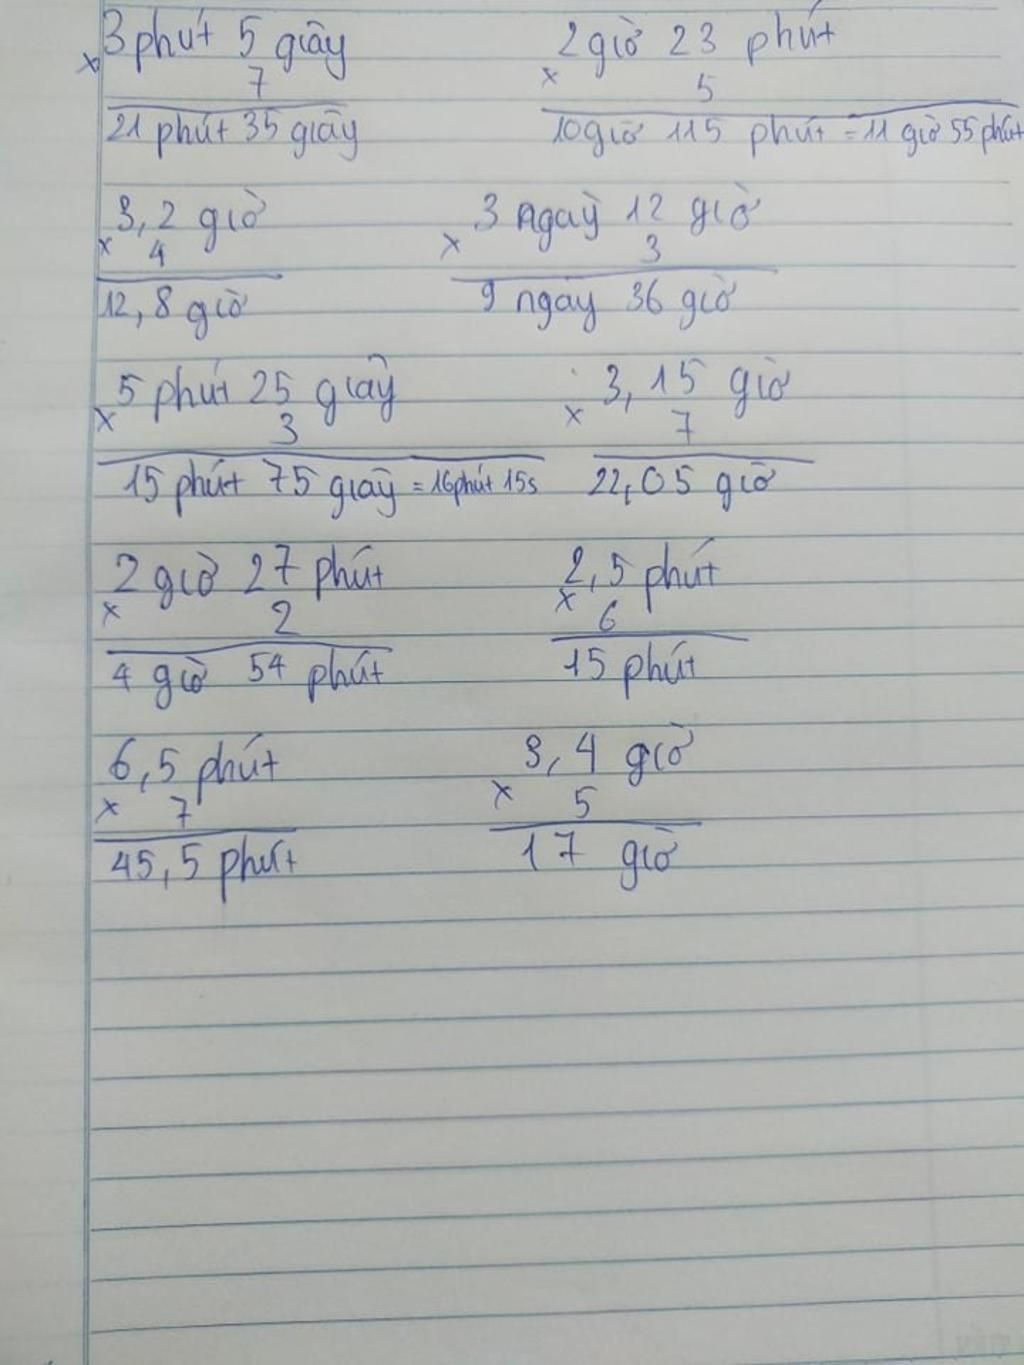 3 phút 5 giây
x 7
21 phút 35 giây
2 giờ 23 phút
x 5
10 giờ 115 phút = 11 giờ 55 phút
3,2 giờ
x 4
12,8 giờ
3 ngày 12 giờ
x 3
9 ngày 36 giờ
5 phút 25 giây
x 3
15 phút 75 giây = 16 phút 15s
3,15 giờ
x 7
22,05 giờ
2 giờ 27 phút
x 2
4 giờ 54 phút
2,5 phút
x 6
15 phút
6,5 phút
x 7
45,5 phút
3,4 giờ
x 5
17 giờ